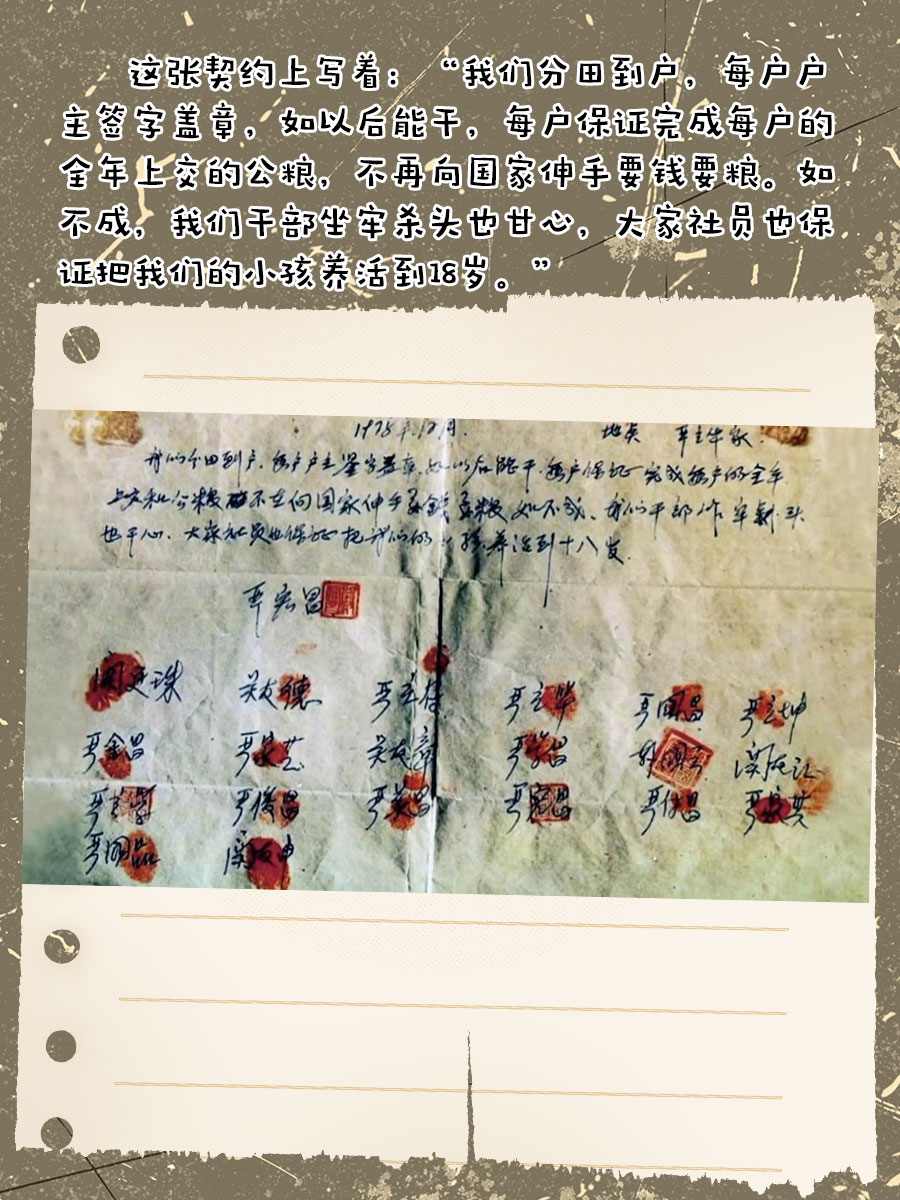 这张契约上写着：“我们分田到户，每户户
主签字盖章，如以后能干，每户保证完成每户的
全年上交的公粮，不再向国家伸手要钱要粮。如
不成，我们干部坐牢杀头也甘心，大家社员也保
证把我们的小孩养活到18岁。”
1978年12月 地矣 严立华家
我们分田到户，每户户主签字盖章，如以后能干，每户保证完成每户的全年
上交和公粮，不在向国家伸手要钱要粮，如不成，我们干部作牢剎头
也干心，大家社员也保证把我们的小孩养活到十八岁
严宏昌
关廷珠 关友德 严立符 严立华 严国昌 严立坤
严金昌 严美昌 关友江
严学昌
严俊昌
严国品 关友申